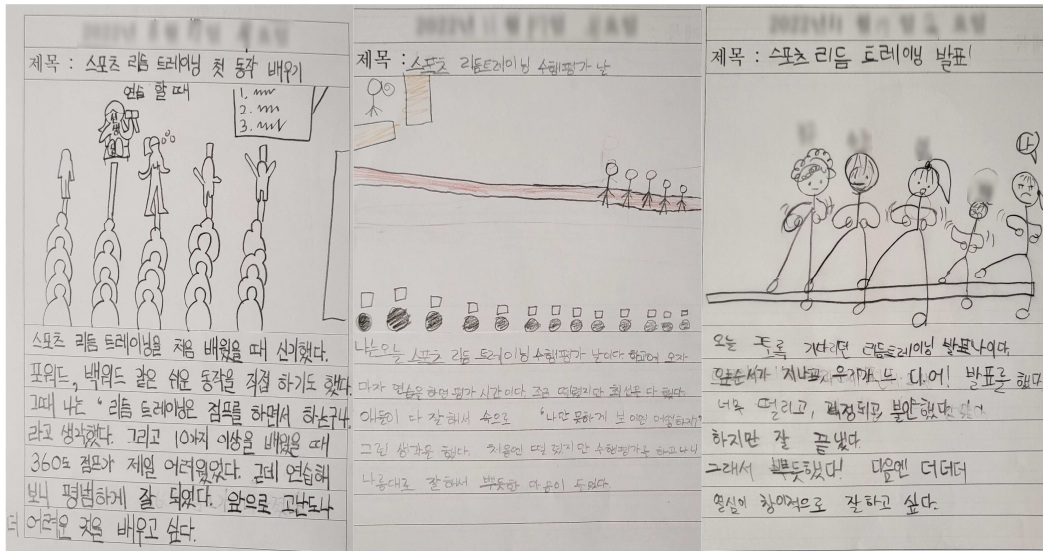 제목 : 스포츠 리듬 트레이닝 첫 동작 배우기
연습 할 때
1.
2.
3.
스포츠 리듬 트레이닝을 처음 배웠을 때 신기했다.
포워드, 백워드 같은 쉬운 동작을 직접 하기도 했다.
그때 나는 "리듬 트레이닝은 점프를 하면서 하는구나
라고 생각했다. 그리고 10가지 이상을 배웠을 때
360도 점프가 제일 어려웠었다. 근데 연습해
보니 평범하게 잘 되었다. 앞으로 고난도나
더 어려운 것을 배우고 싶다.
제목 : 스포츠 리듬트레이닝 수행평가 날
나는 오늘 스포츠 리듬 트레이닝 수행평가 날이다. 학교에 오자
마자 연습을 하면 평가 시간이다. 조금 떨렸지만 최선을 다 했다.
애들이 다 잘해서 속으로 "나만 못하게 보이면 어떡하지?"
그런 생각을 했다. 처음엔 떨렸지만 수행평가를 하고나니
나름대로 잘해서 뿌듯한 마음이 들었다.
2022년 11월
제목 : 스포츠 리듬 트레이닝 발표!
나
오늘 기다리던 리듬트레이닝 발표날이다.
지나고 우리가 드 디 어! 발표를 했다
너무 떨리고, 걱정되고 불안했다
하지만 잘 끝냈다.
그래서 뿌듯했다! 다음엔 더더더
열심히 창의적으로 잘하고 싶다.